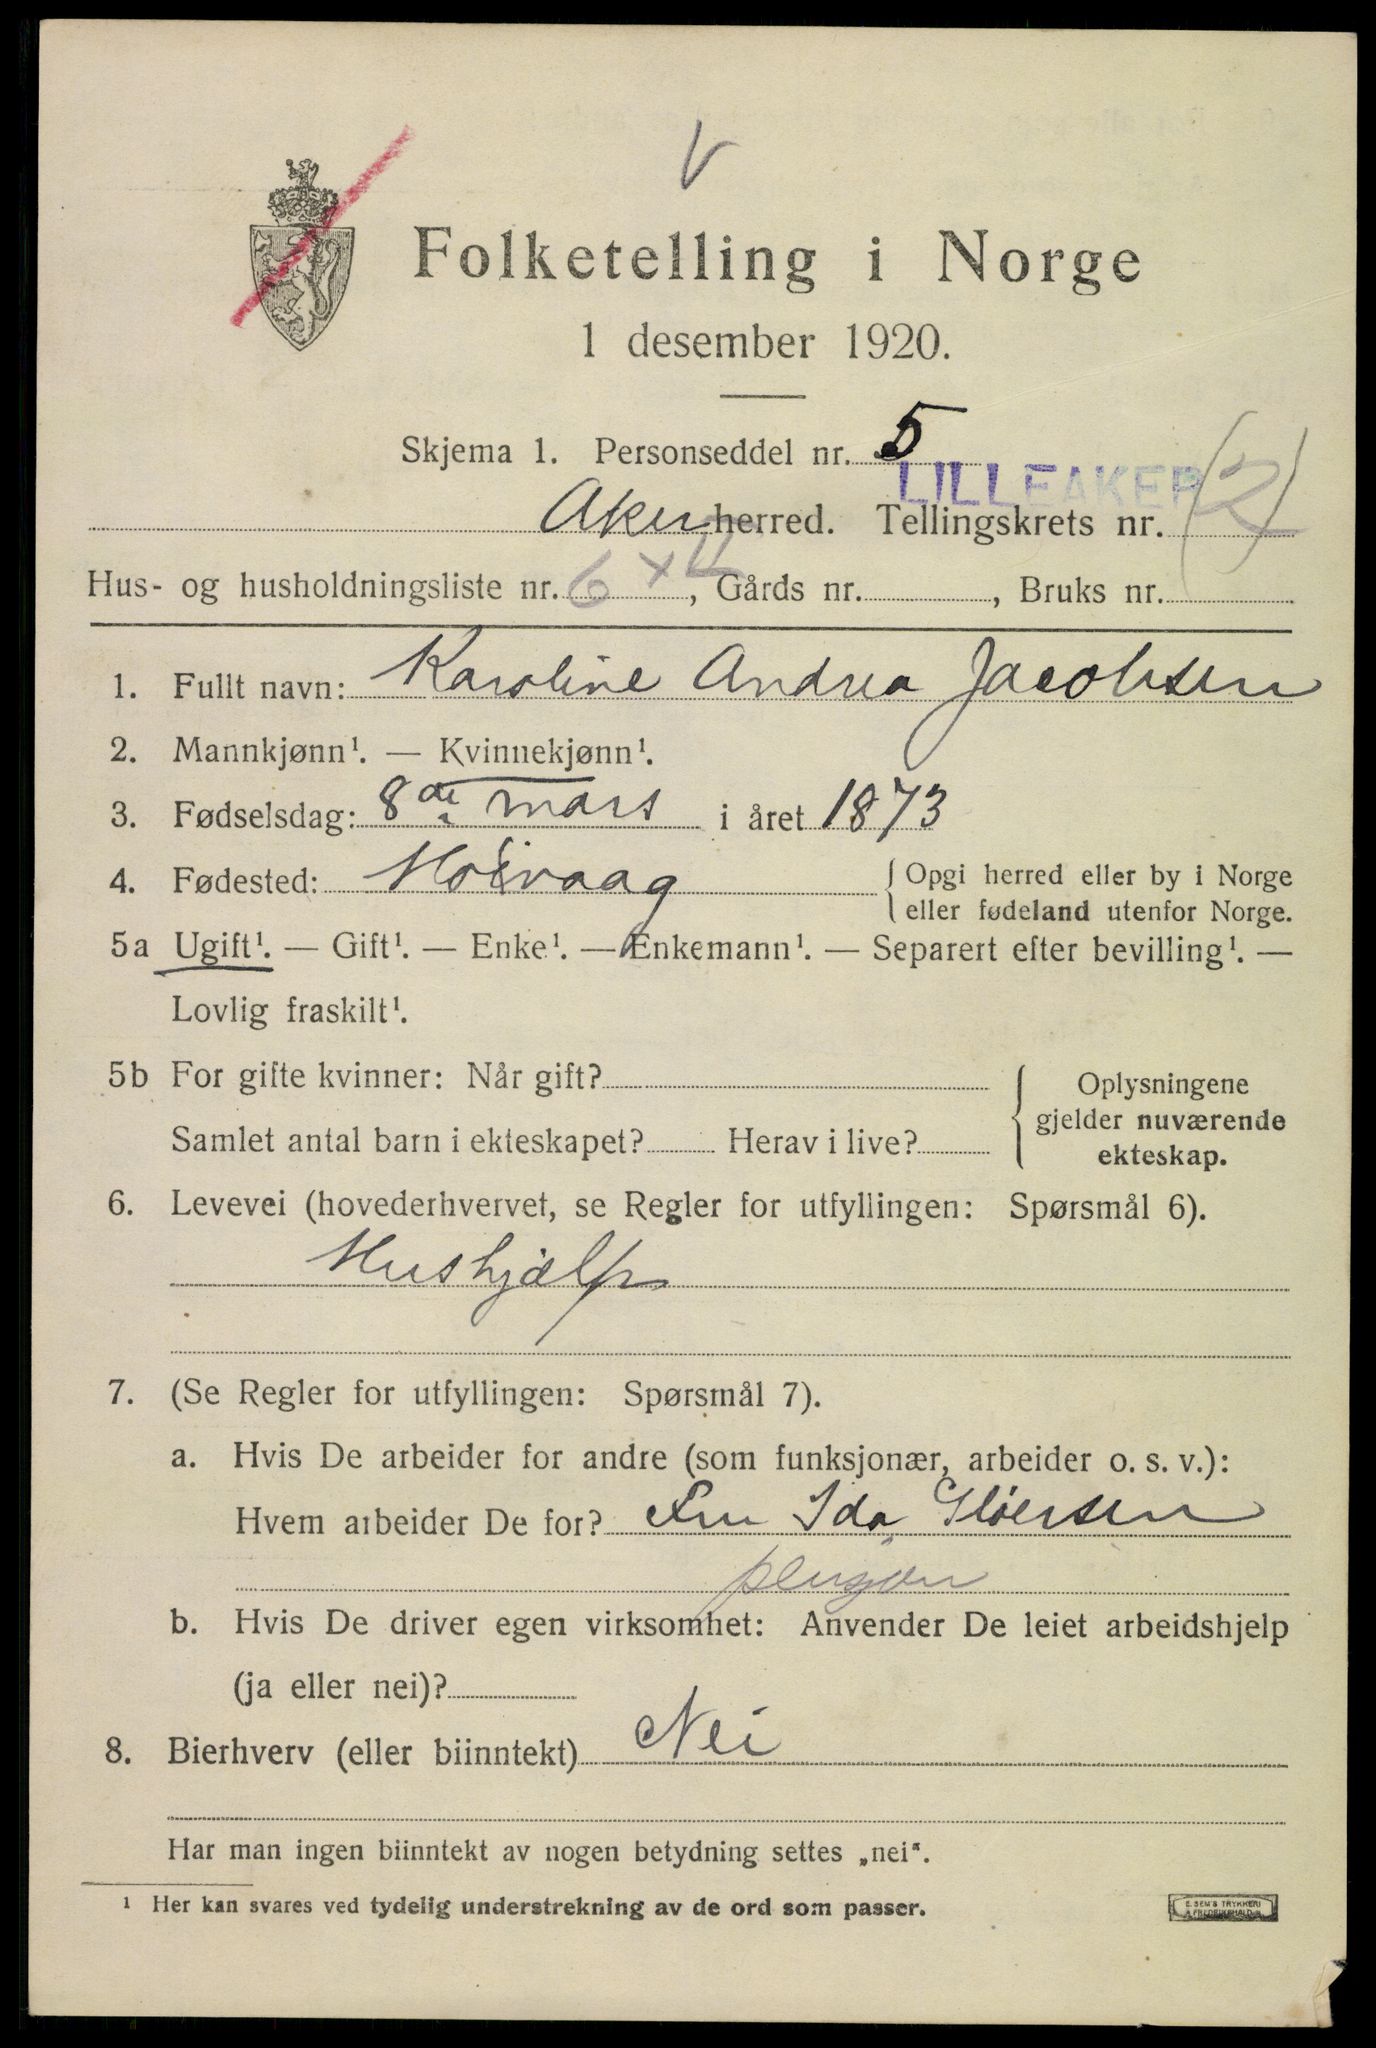 V
Folketelling i Norge
1 desember 1920.
Skjema 1. Personseddel nr. 5
LILLEAKER
Aker herred. Tellingskrets nr. (2)
Hus- og husholdningsliste nr. 6 x 4, Gårds nr. , Bruks nr.
1. Fullt navn: Karoline Andrea Jacobsen
2. Mannkjønn¹. — Kvinnekjønn¹.
3. Fødselsdag: 8de mars i året 1873
4. Fødested: Høivaag { Opgi herred eller by i Norge
eller fødeland utenfor Norge.
5a Ugift¹. — Gift¹. — Enke¹. — Enkemann¹. — Separert efter bevilling¹. —
Lovlig fraskilt¹.
5b For gifte kvinner: Når gift? { Oplysningene
gjelder nuværende
Samlet antal barn i ekteskapet? Herav i live?
ekteskap.
6. Levevei (hovederhvervet, se Regler for utfyllingen: Spørsmål 6).
Hushjælp
7. (Se Regler for utfyllingen: Spørsmål 7).
a. Hvis De arbeider for andre (som funksjonær, arbeider o. s. v.):
Hvem arbeider De for? Fru Ida Gløersen
pensjon
b. Hvis De driver egen virksomhet: Anvender De leiet arbeidshjelp
(ja eller nei)?
8. Bierhverv (eller biinntekt) Nei
Har man ingen biinntekt av nogen betydning settes „nei".
¹ Her kan svares ved tydelig understrekning av de ord som passer.
E. SEM'S TRYKKERI
FREDRIKSHALD